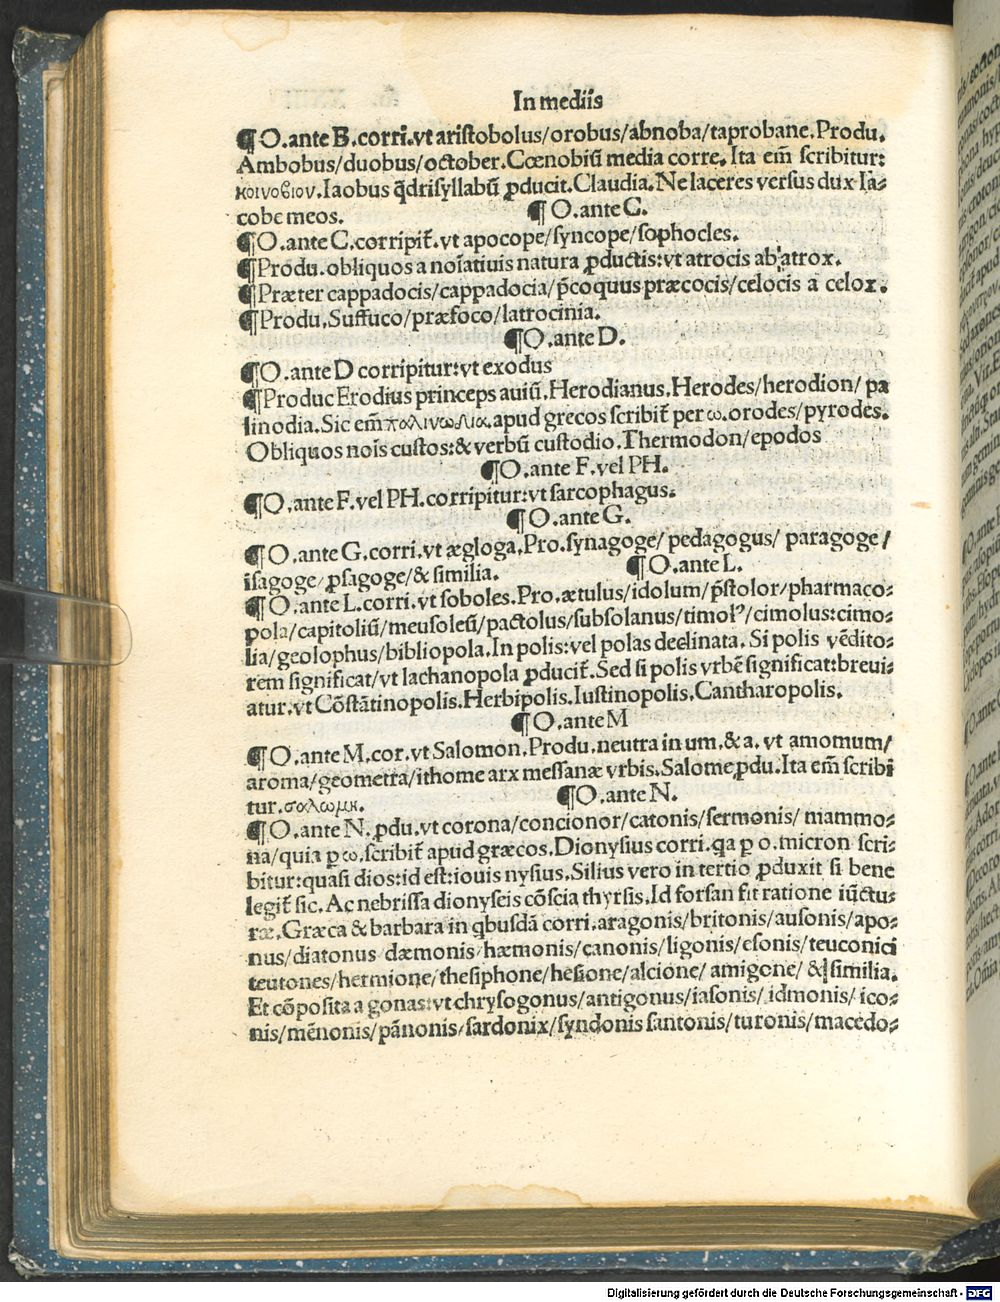 In mediis
¶ O.ante B.corri.vt aristobolus/orobus/abnoba/taprobane.Produ.
Ambobus/duobus/october.Cœnobiū media corre.Ita em̄ scribitur:
κοινοβιον.Iaobus q̄drisyllabū ꝓducit.Claudia.Ne laceres versus dux Ia⸗
cobe meos. ¶ O.ante C.
¶O.ante C.corripit̄.vt apocope/syncope/sophocles.
¶Produ.obliquos a noīatiuis natura ꝓductis:vt atrocis ab atrox.
¶Præter cappadocis/cappadocia/p̄coquus præcocis/celocis a celox.
¶Produ.Suffuco/præfoco/latrocinia.
¶O.ante D.
¶O.ante D corripitur:vt exodus
¶Produc Erodius princeps auiū.Herodianus.Herodes/herodion/ pa
linodia.Sic em̄ παλινωδια.apud grecos scribit̄ per ω.orodes/pyrodes.
Obliquos nois custos:& verbū custodio.Thermodon/epodos
¶O.ante F.vel PH.
¶O.ante F.vel PH.corripitur:vt sarcophagus.
¶O.ante G.
¶O.ante G.corri.vt ægloga.Pro.synagoge/ pedagogus/ paragoge/
isagoge/ꝓsagoge/& similia. ¶O.ante L.
¶O.ante L.corri.vt soboles.Pro.ætulus/idolum/p̄stolor/pharmaco⸗
pola/capitoliū/meusoleū/pactolus/subsolanus/timolꝰ/cimolus:cimo⸗
lia/geolophus/bibliopola.In polis:vel polas declinata. Si polis vēdito⸗
rem significat/vt lachanopola ꝓducit̄. Sed si polis vrbē significat:breui⸗
atur.vt Cōstātinopolis.Herbipolis.Iustinopolis.Cantharopolis.
¶O.ante M
¶O.ante M.cor.vt Salomon.Produ.neutra in um.& a. vt amomum/
aroma/geometra/ithome arx messanæ vrbis.Salome ꝓdu.Ita em̄ scribi
tur.σαλωμη. ¶O.ante N.
¶O.ante N.ꝓdu.vt corona/concionor/catonis/sermonis/ mammo⸗
na/quia ꝑ ω.scribit̄ apud græcos.Dionysius corri.qa ꝑ o.micron scri⸗
bitur:quasi dios:id est:iouis nysius.Silius vero in tertio ꝓduxit si bene
legit̄ sic.Ac nebrissa dionyseis cōscia thyrsis.Id forsan fit ratione iūctu⸗
ræ.Græca & barbara in qbusdā corri.aragonis/britonis/ausonis/apo⸗
nus/diatonus dæmonis/hæmonis/canonis/ligonis/esonis/teuconici
teutones/hermione/thesiphone/hesione/alcione/ amigone/ & similia.
Et cōposita a gonas:vt chrysogonus/antigonus/iasonis/ idmonis/ ico⸗
nis/mēnonis/pānonis/sardonix/syndonis santonis/turonis/macedo⸗
Digitalisierung gefördert durch die Deutsche Forschungsgemeinschaft - DFG